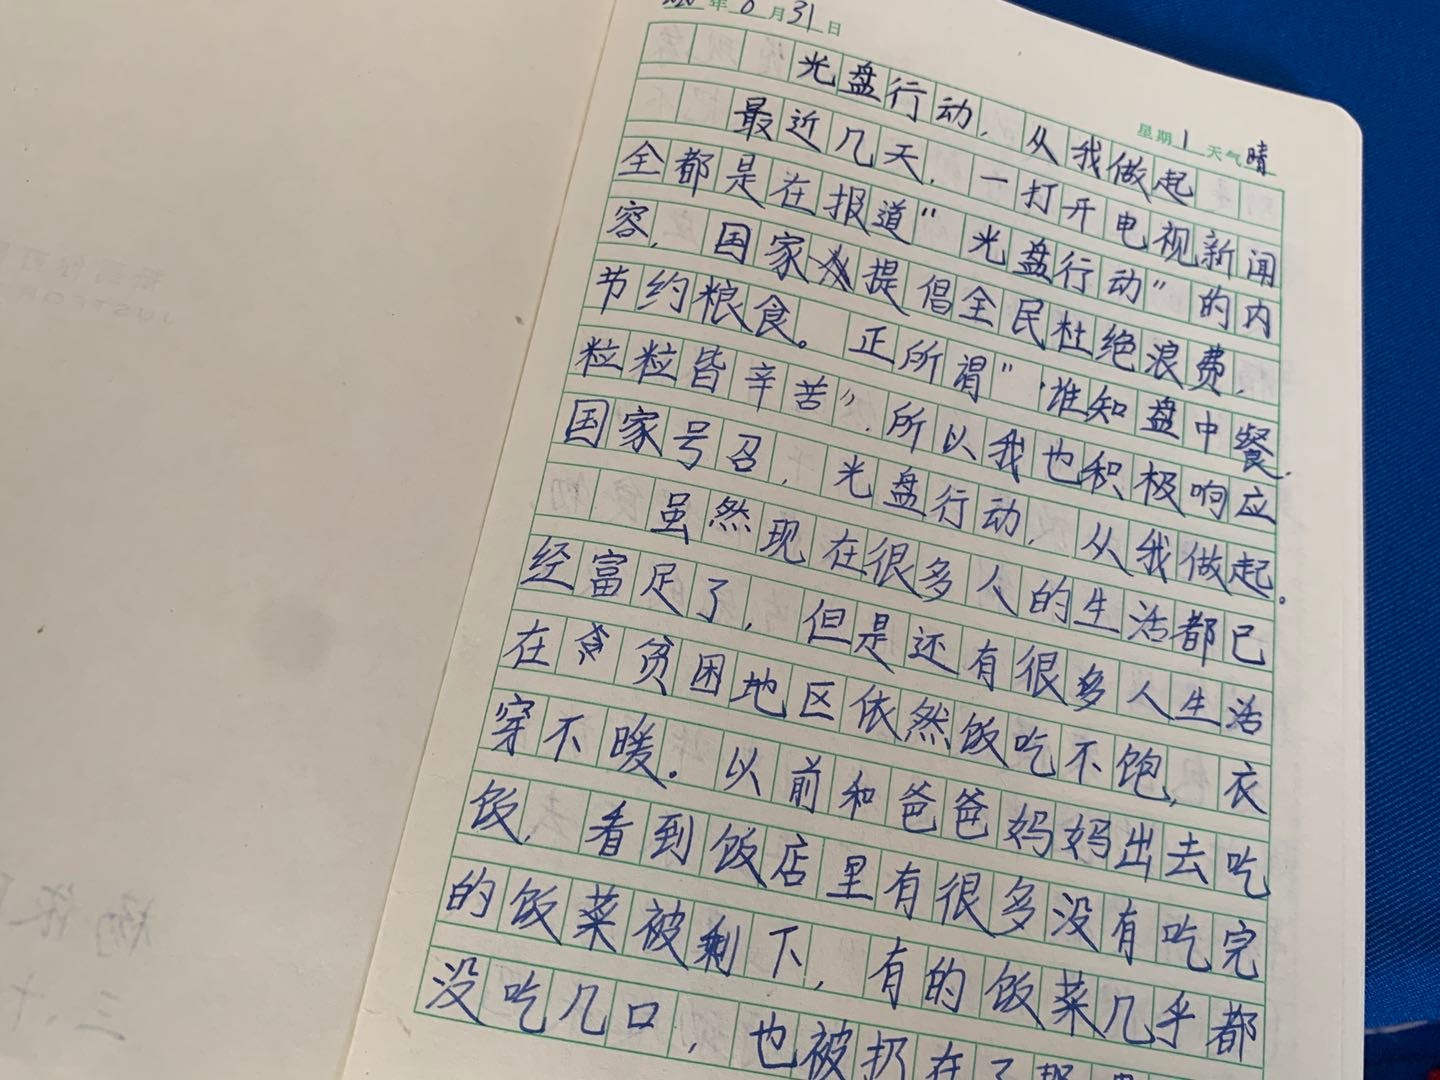 年8月31日
星期1天气晴
光盘行动，从我做起
最近几天，一打开电视新闻
全都是在报道“光盘行动”的内
容，国家提倡全民杜绝浪费，
节约粮食。正所谓“谁知盘中餐，
粒粒皆辛苦”，所以我也积极响应
国家号召，光盘行动，从我做起。
虽然现在很多人的生活都已
经富足了，但是还有很多人生活
在贫困地区依然饭吃不饱，衣
穿不暖。以前和爸爸妈妈出去吃
饭，看到饭店里有很多没有吃完
的饭菜被剩下，有的饭菜几乎都
没吃几口，也被扔在了